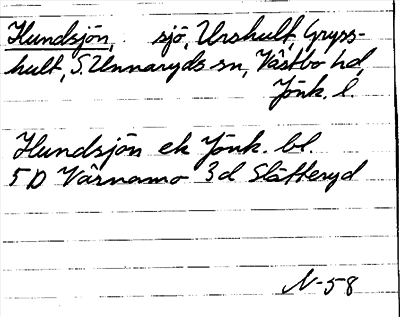 Hundsjön, sjö, Urshult, Gryss-
hult, S. Unnaryds sn, Västbo hd,
Jönk. l.
Hundsjön ek Jönk. bl.
5D Värnamo 3d Slätteryd
N-58